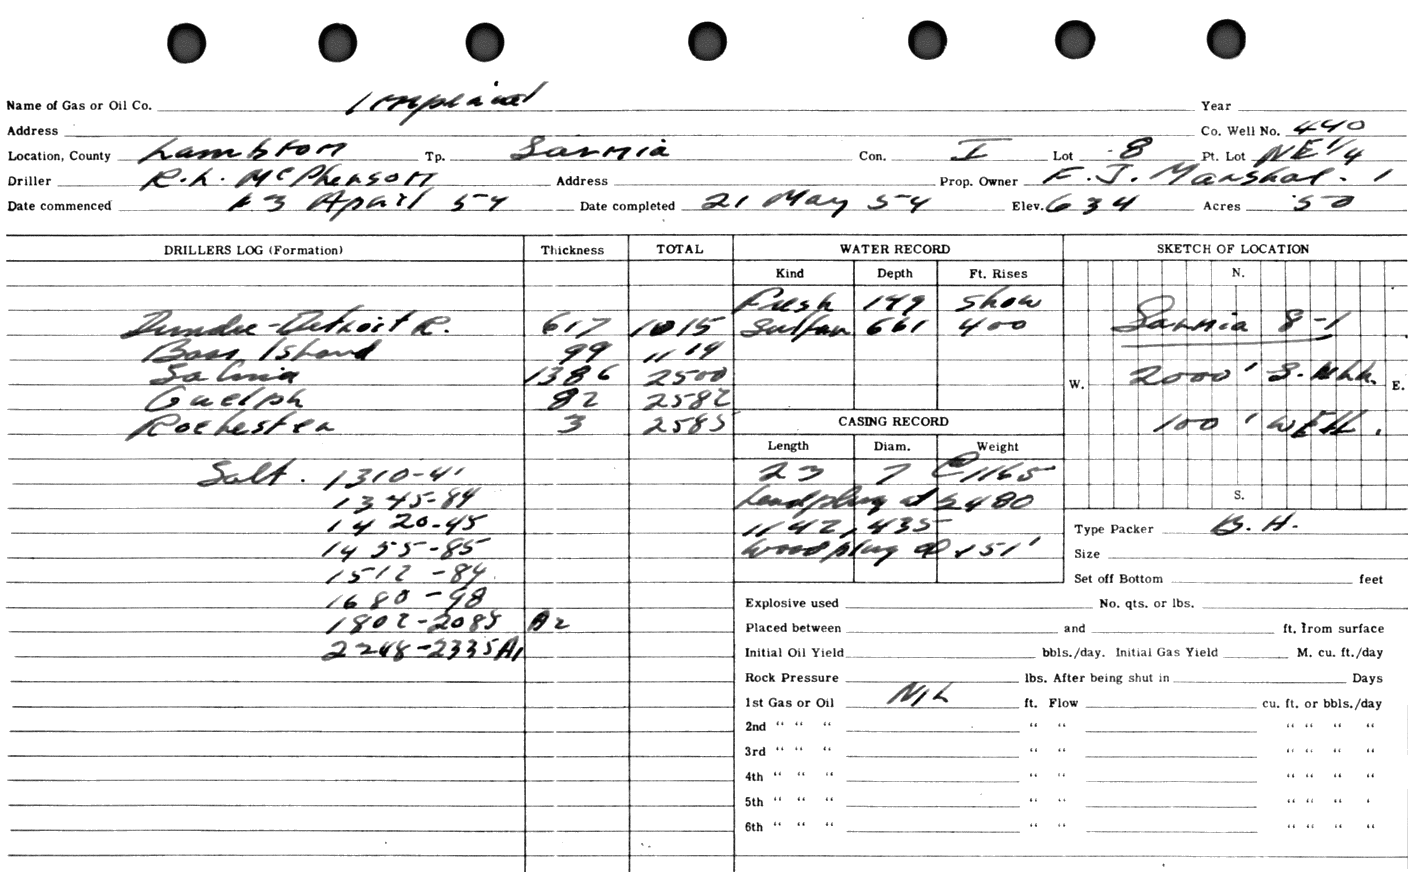 Name of Gas or Oil Co. Year
Address Co. Well No. 440
Location, County Lambton Tp. Sarnia Con. I Lot 8 Pt. Lot NE 1/4
Driller R.L. McPherson Address Prop. Owner F. J. Marshal
Date commenced April 54 Date completed 21 May 54 Elev. 634 Acres 50
DRILLERS LOG (Formation) Thickness TOTAL WATER RECORD SKETCH OF LOCATION
Kind Depth Ft. Rises N.
Fresh 149 Show
Dundee-Detroit R. 617 1015 Sulfur 661 400 Sarnia 8-1
Bass Island 99 1114
Salina 1386 2500 W. 2000' E.
Guelph 82 2582
Rochester 3 2585 CASING RECORD 100'
Length Diam. Weight
Salt. 1310-41 23 7 @ 1165
1345-84 Lead plug at 2480 S.
1420-45 1142, 435 Type Packer B.H.
1455-85 Wood plug @ 151' Size
1512-84 Set off Bottom feet
1680-98 Explosive used No. qts. or lbs.
1802-2085 A2 Placed between and ft. from surface
2248-2335 A1 Initial Oil Yield bbls./day. Initial Gas Yield M. cu. ft./day
Rock Pressure lbs. After being shut in Days
1st Gas or Oil NIL ft. Flow cu. ft. or bbls./day
2nd " " " " " " " " "
3rd " " " " " " " " "
4th " " " " " " " " "
5th " " " " " " " " '
6th " " " " " " " " "